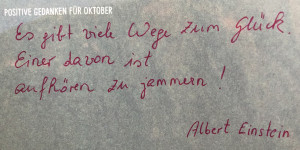 POSITIVE GEDANKEN FÜR OKTOBER
Es gibt viele Wege zum Glück.
Einer davon ist
aufhören zu jammern!
Albert Einstein